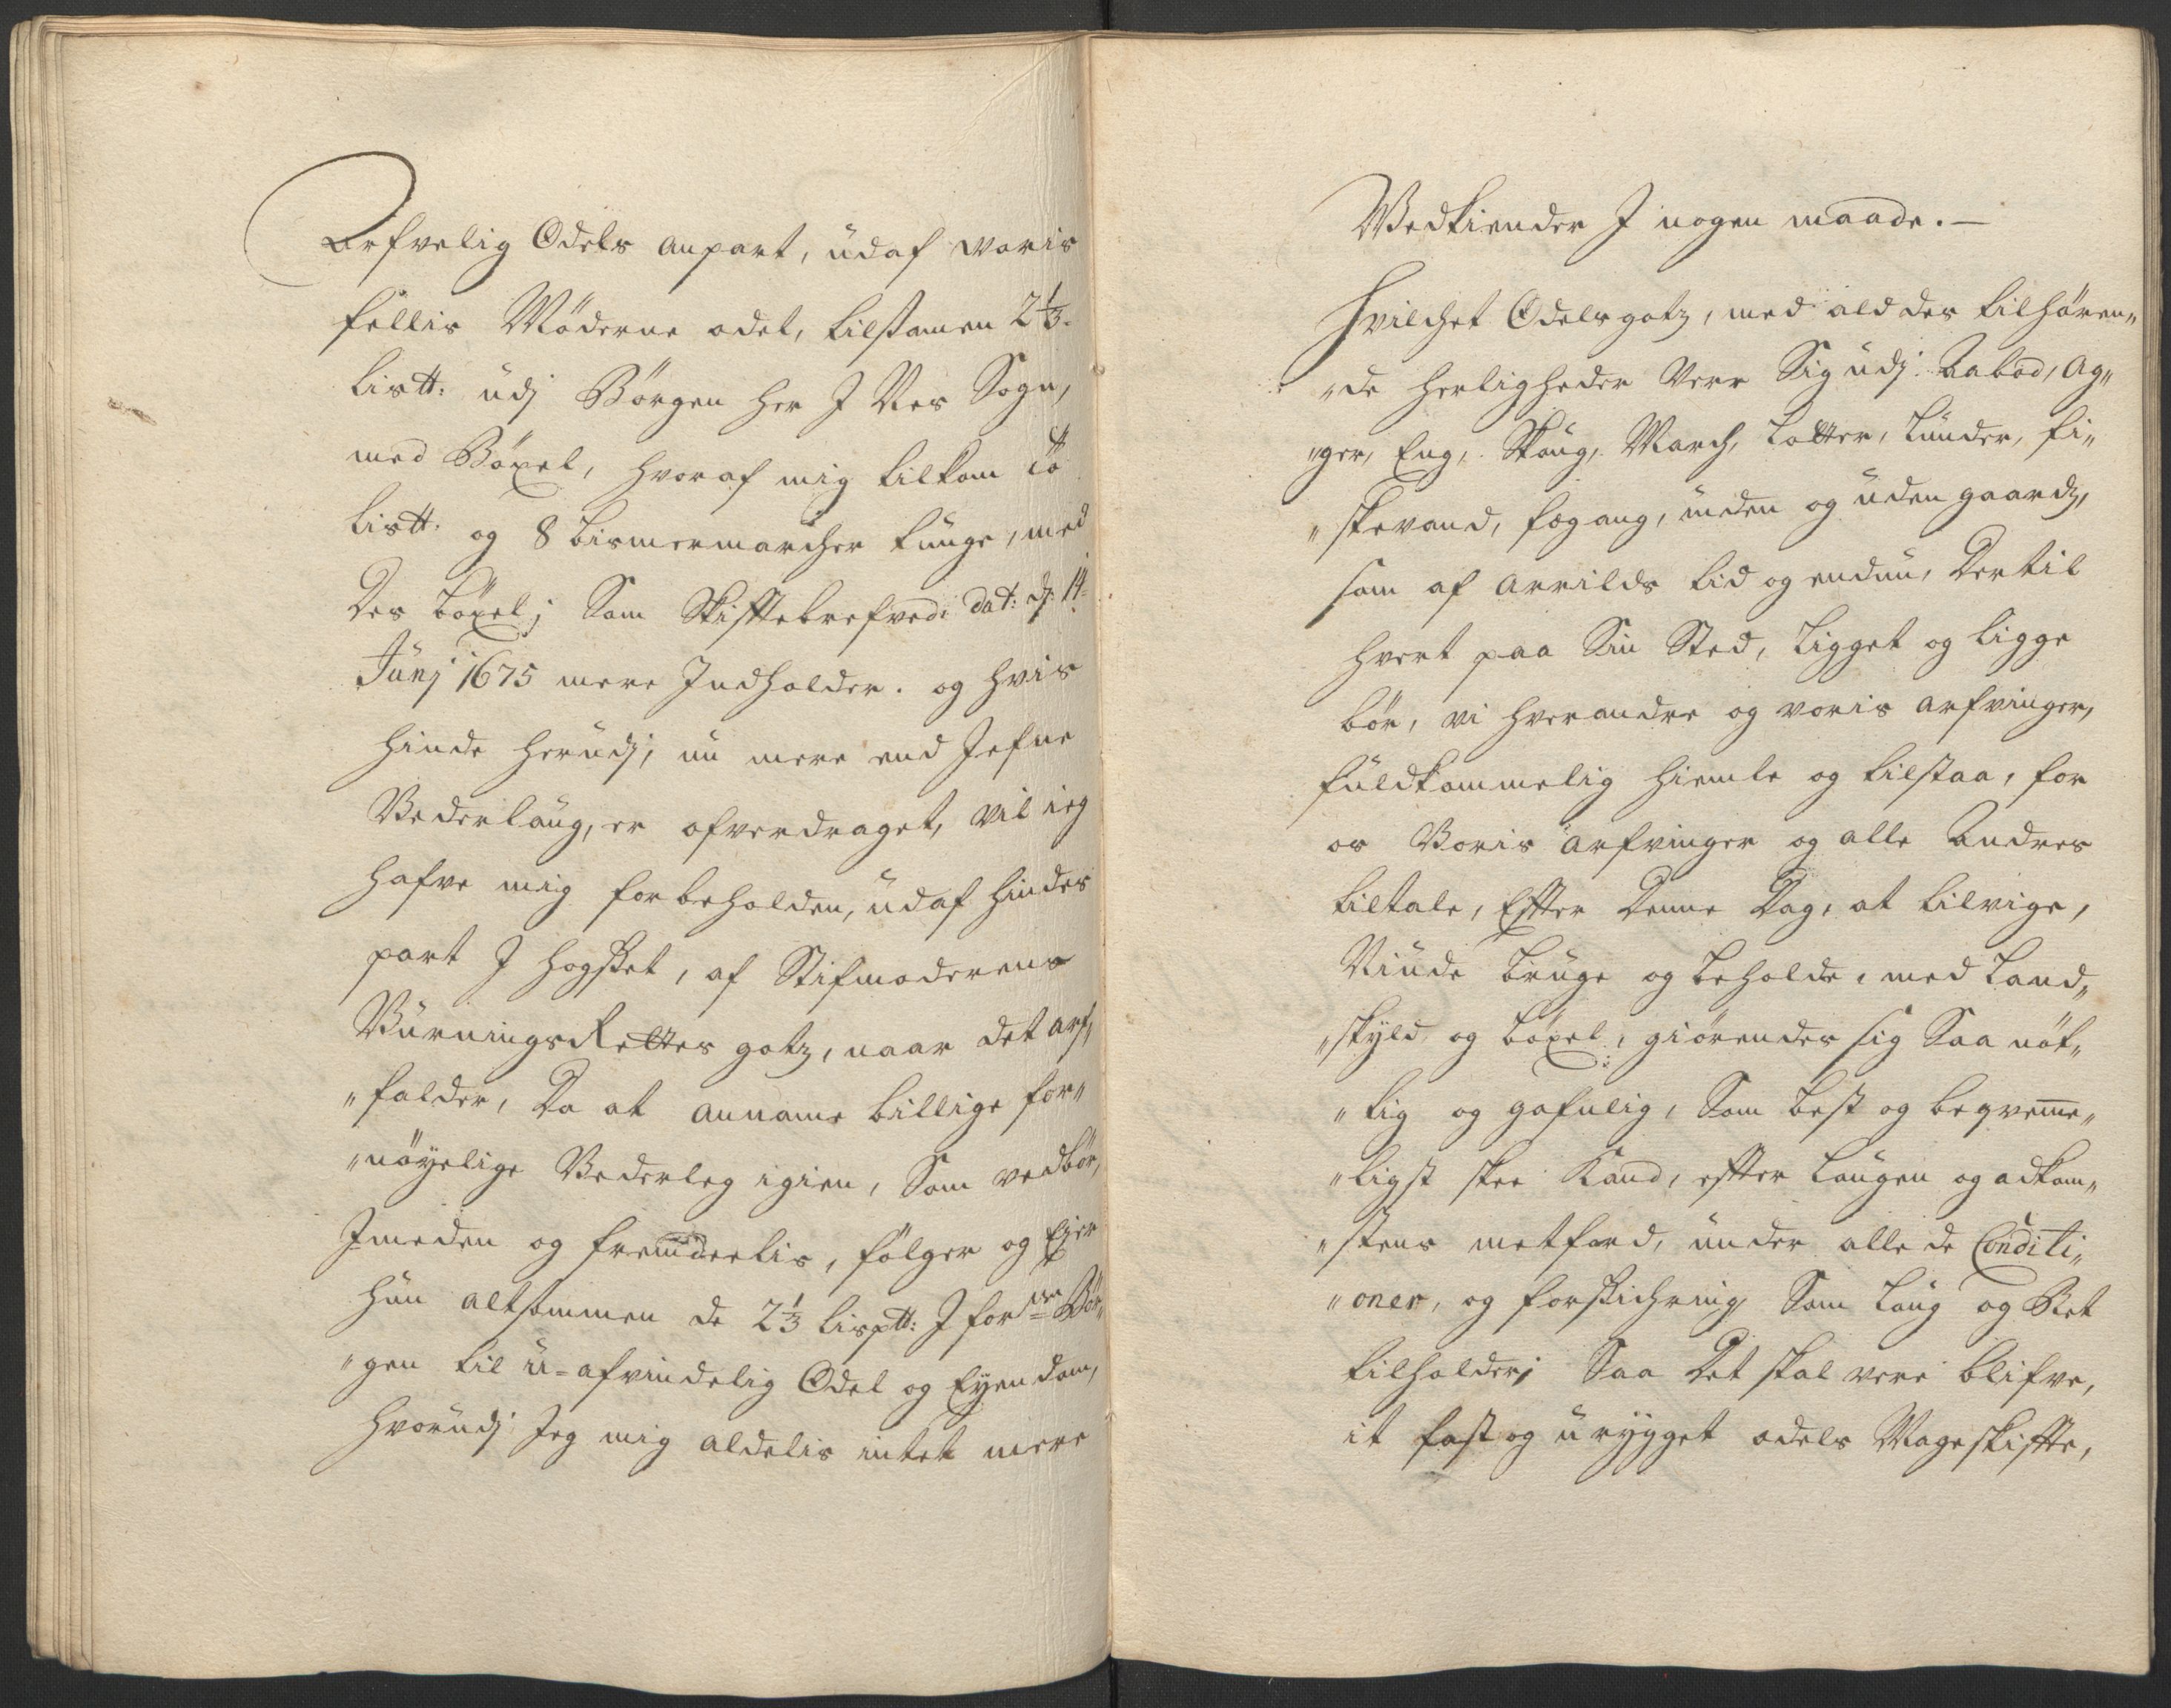 Arfvelig Odels anpart, udaf voris
fellis Möderne odel, tilsamen 2 1/3.
Listt: udj Börgen her J Nes Sogn,
med Böxel, hvoraf mig tilkom to
listt. og 8 bismermarcher tunge, med
Des böxel; Som Skifftebrefvedi dat: d: 14.
Junj 1675 mere Indholder. og hvis
hinde herudj, nu mere end Jefne
Vederlaug, er ofverdraget, vil ieg
hafve mig forbeholden, udaf hindes
part J hogstet, af Stifmoderens
VurningsRettes gotz, naar det arf„
„falder, Da at anname billige for„
„nöyelige Vederleg igien, Som vedbör,
Jmeden og fremdeelis, fölger og Ejer
hun altsammen de 2 1/3 lisptt: J forne Bör„
„gen til u=afvindelig Odel og Eyendom,
hvorudj Jeg mig aldelis intet mere
Vedkiender J nogen maade.—
Hvilchet Odelsgotz, med ald des tilhören„
„de herligheder Vere Sig udj Labod, Ag„
„ger, Eng, Skoug, March, Lotter, Lunder, fi„
„skevand, fægang, inden og uden gaardz,
som af Arrilds tid og endnu, Dertil
hvert paa Sin Sted, Ligget og ligge
bör, vi hverandre og voris arfvinger,
fuldkommelig hiemle og tilstaa, for
os Voris arfvinger og alle Andres
tiltale, Effter Denne Dag, at tilvige,
Niude bruge og beholde, med Land„
„skyld og böxel, giörendes sig Saa nöt„
„tig og gafnlig, Som best og beqveme„
„ligst skee Kand, effter Laugen og adkom„
„stens metførd, under alle de Conditi„
„oner, og forsichring, Som Laug og Ret
tilholder; Saa Det skal vere blifve,
it fast og urygget odels Mageskiffte,